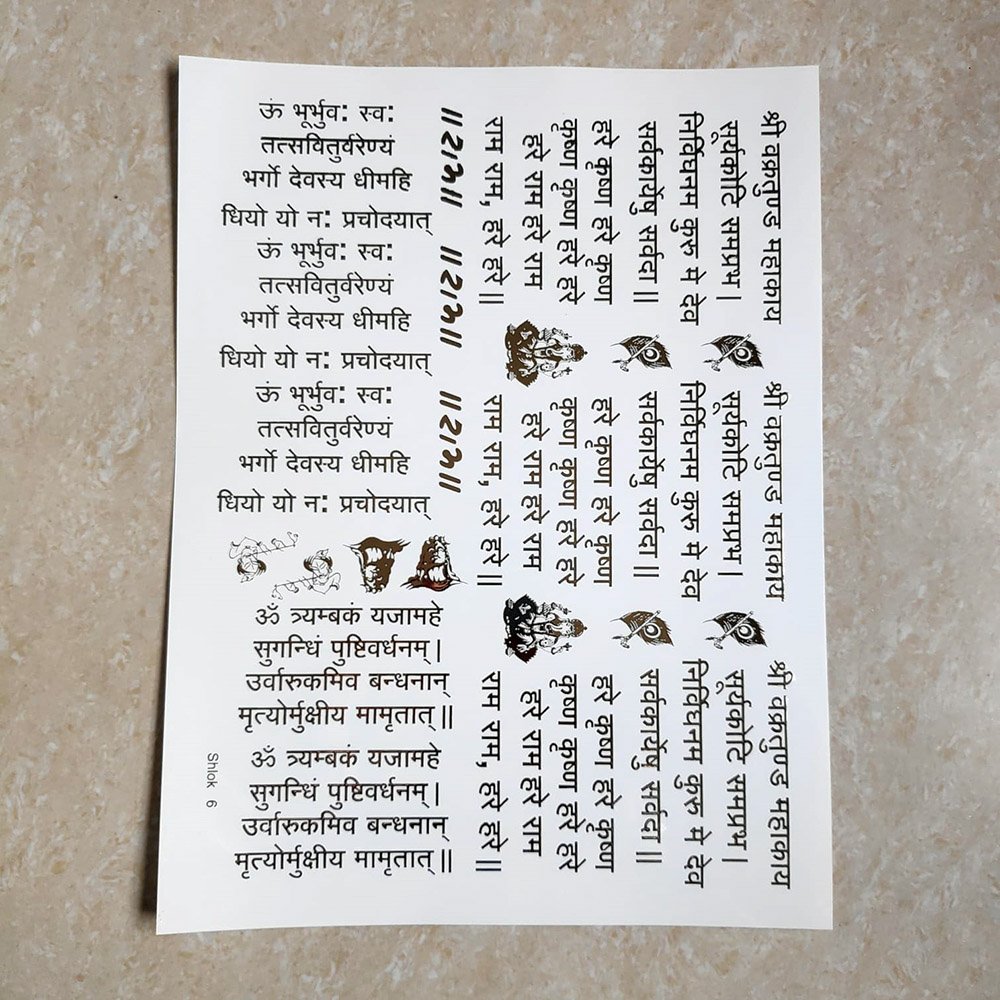 ऊं भूर्भुवः स्वः
तत्सवितुर्वरेण्यं
भर्गो देवस्य धीमहि
धियो यो नः प्रचोदयात्
ऊं भूर्भुवः स्वः
तत्सवितुर्वरेण्यं
भर्गो देवस्य धीमहि
धियो यो नः प्रचोदयात्
ऊं भूर्भुवः स्वः
तत्सवितुर्वरेण्यं
भर्गो देवस्य धीमहि
धियो यो नः प्रचोदयात्
ॐ त्र्यम्बकं यजामहे
सुगन्धिं पुष्टिवर्धनम् |
उर्वारुकमिव बन्धनान्
मृत्योर्मुक्षीय मामृतात् ||
ॐ त्र्यम्बकं यजामहे
सुगन्धिं पुष्टिवर्धनम् |
उर्वारुकमिव बन्धनान्
मृत्योर्मुक्षीय मामृतात् ||
Shlok 6
|| राम ||
|| राम ||
|| राम ||
श्री वक्रतुण्ड महाकाय
सुर्यकोटि समप्रभ |
निर्विघनम कुरु मे देव
सर्वकार्येषु सर्वदा ||
हरे कृष्ण हरे कृष्ण
कृष्ण कृष्ण हरे हरे
हरे राम हरे राम
राम राम, हरे हरे ||
श्री वक्रतुण्ड महाकाय
सुर्यकोटि समप्रभ |
निर्विघनम कुरु मे देव
सर्वकार्येषु सर्वदा ||
हरे कृष्ण हरे कृष्ण
कृष्ण कृष्ण हरे हरे
हरे राम हरे राम
राम राम, हरे हरे ||
श्री वक्रतुण्ड महाकाय
सुर्यकोटि समप्रभ |
निर्विघनम कुरु मे देव
सर्वकार्येषु सर्वदा ||
हरे कृष्ण हरे कृष्ण
कृष्ण कृष्ण हरे हरे
हरे राम हरे राम
राम राम, हरे हरे ||